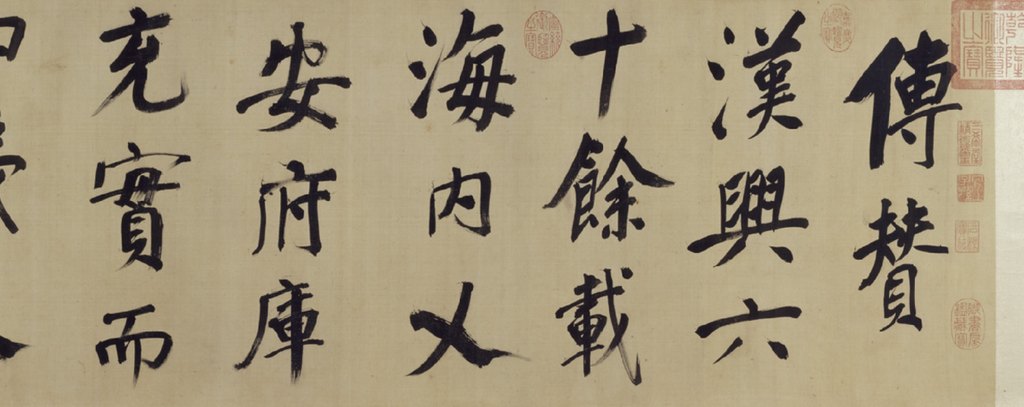 傳贊
漢興六
十餘載
海內乂
安府庫
充實而